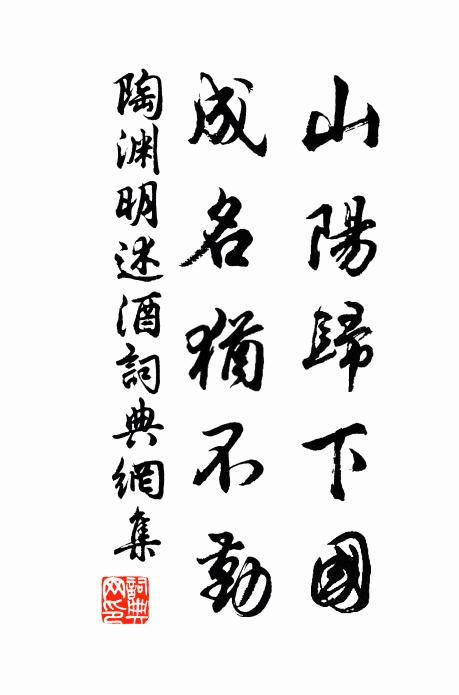 山陽歸下國
成名猶不勤
陶淵明述酒詞典網集
詞典
网印